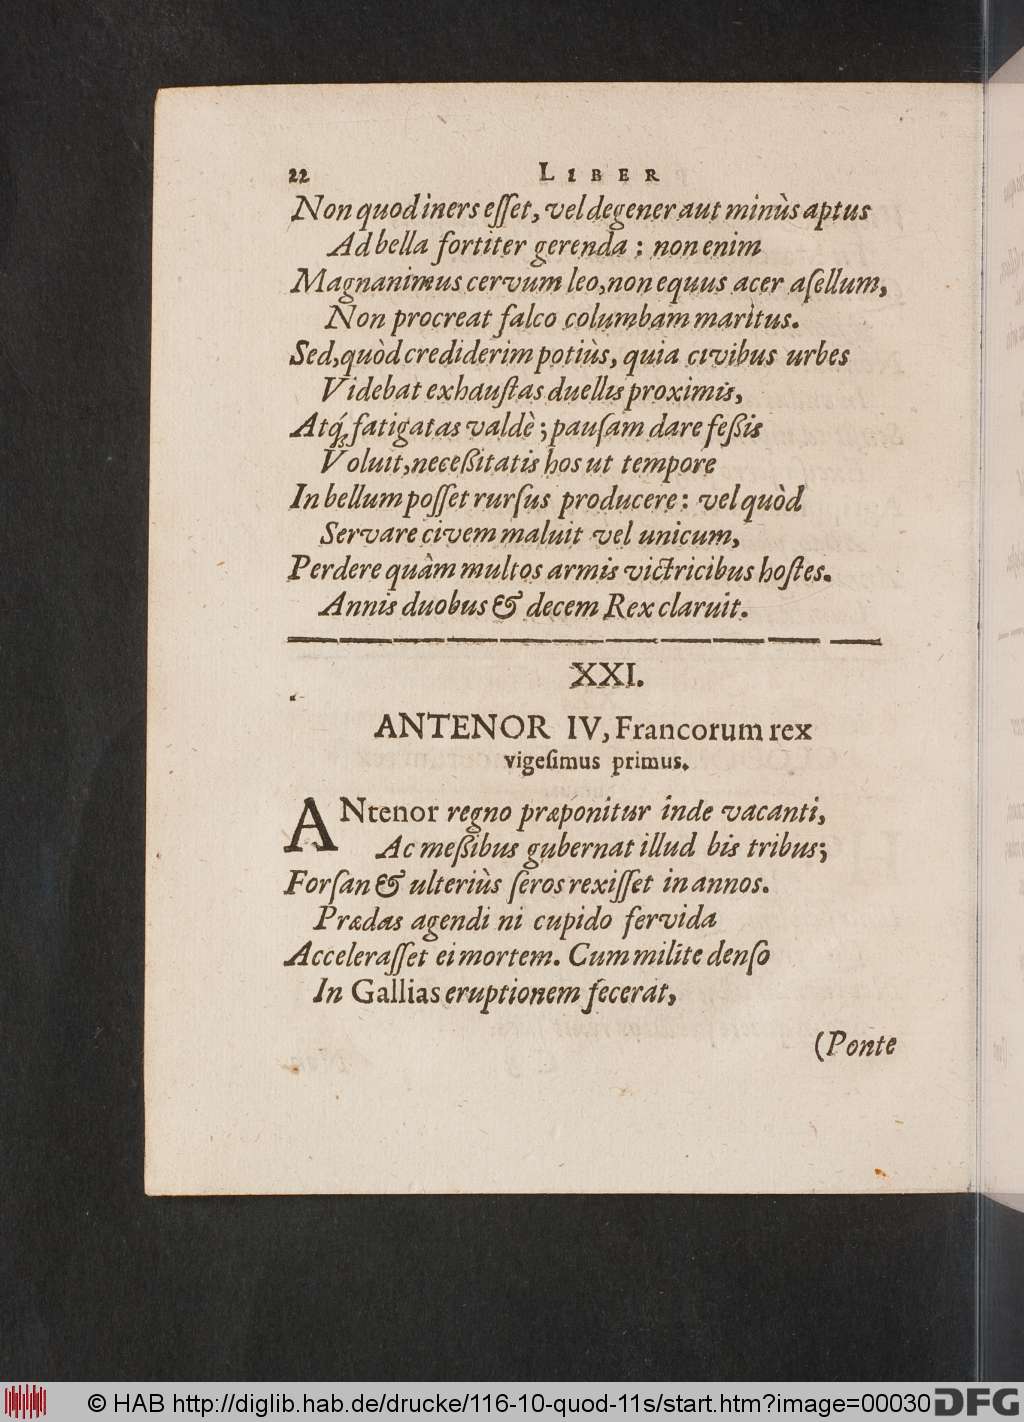 22 LIBER
Non quod iners eſſet, vel degener aut minùs aptus
Ad bella fortiter gerenda : non enim
Magnanimus cervum leo, non equus acer aſellum,
Non procreat falco columbam maritus.
Sed, quòd crediderim potiùs, quia civibus urbes
Videbat exhauſtas duellis proximis,
Atq́; fatigatas valdè ; pauſam dare feßis
Voluit, neceßitatis hos ut tempore
In bellum poſſet rurſus producere : vel quòd
Servare civem maluit vel unicum,
Perdere quàm multos armis victricibus hoſtes.
Annis duobus & decem Rex claruit.
XXI.
ANTENOR IV, Francorum rex
vigeſimus primus.
ANtenor regno præponitur inde vacanti,
Ac meßibus gubernat illud bis tribus;
Forſan & ulteriùs ſeros rexiſſet in annos.
Prædas agendi ni cupido fervida
Acceleraſſet ei mortem. Cum milite denſo
In Gallias eruptionem fecerat,
(Ponte
© HAB http://diglib.hab.de/drucke/116-10-quod-11s/start.htm?image=00030 DFG